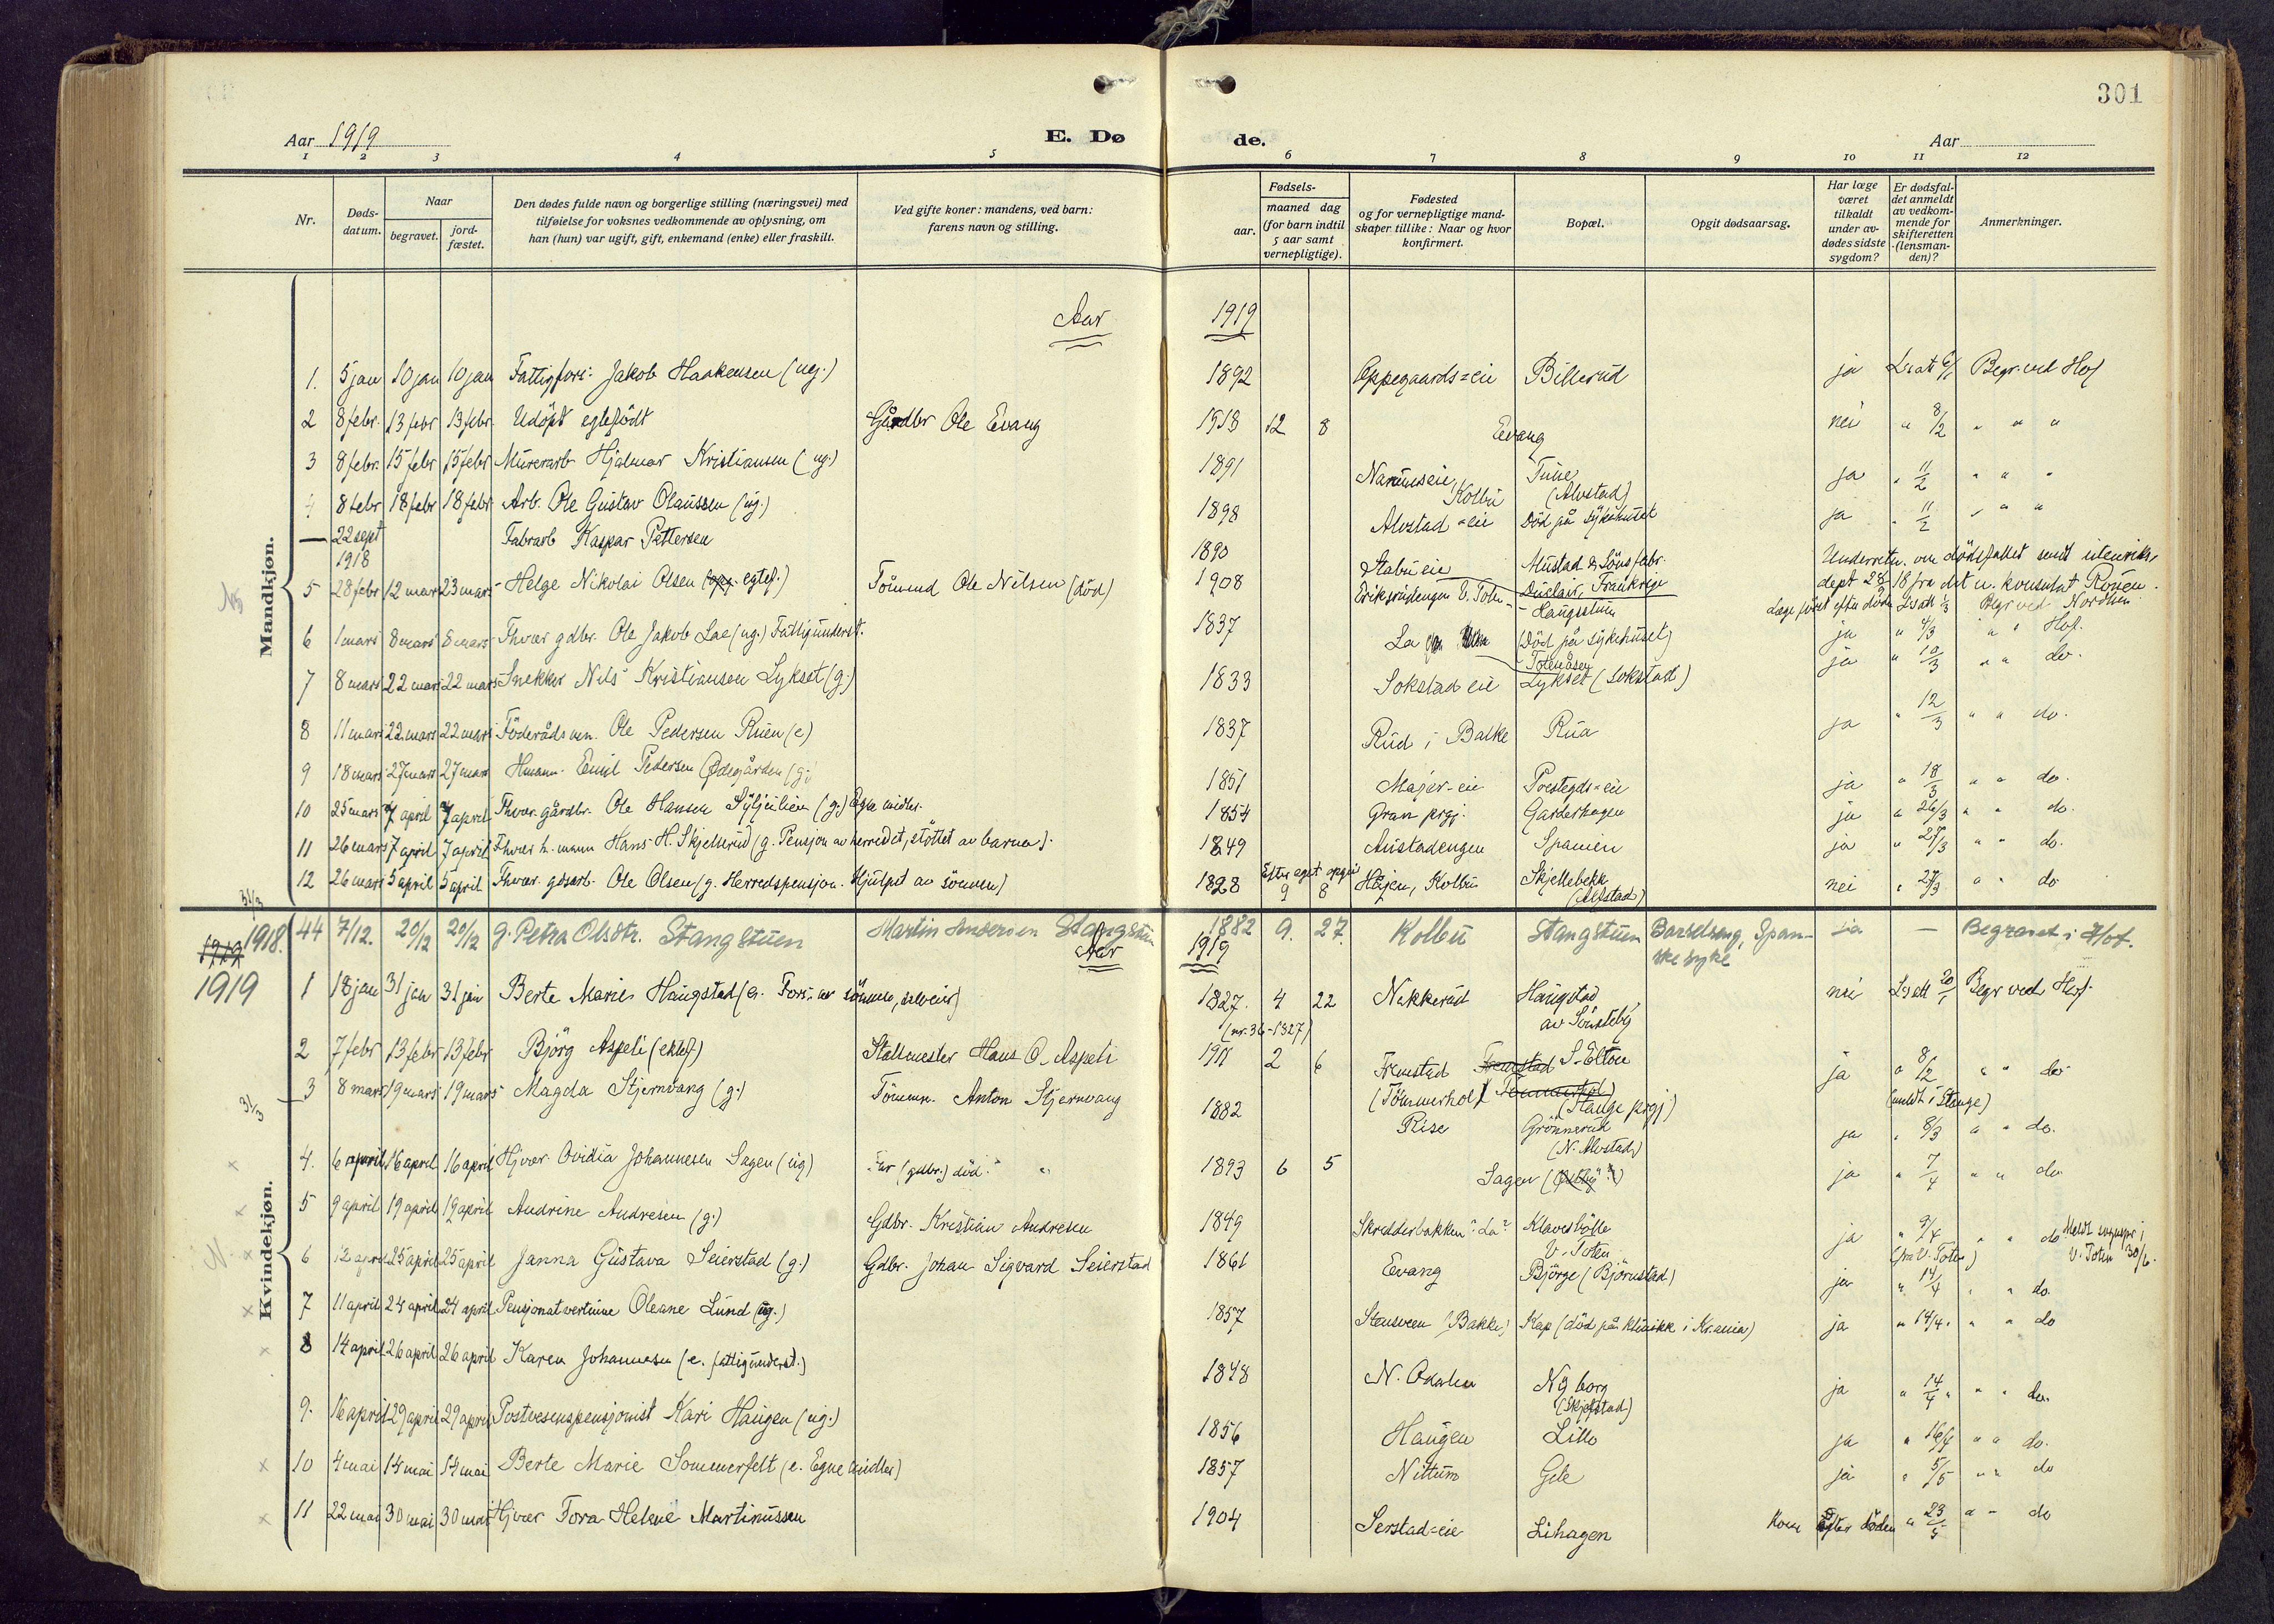 301
Aar 1919
E. Dø
de.
Aar
1 2 3 4 5 6 7 8 9 10 11 12
Nr.
Døds-
datum.
Naar
begravet.
jord-
fæstet.
Den dødes fulde navn og borgerlige stilling (næringsvei) med
tilføielse for voksnes vedkommende av oplysning, om
han (hun) var ugift, gift, enkemand (enke) eller fraskilt.
Ved gifte koner: mandens, ved barn:
farens navn og stilling.
aar.
Fødsels-
maaned dag
(for barn indtil
5 aar samt
vernepligtige).
Fødested
og for vernepligtige mand-
skaper tillike: Naar og hvor
konfirmert.
Bopæl.
Opgit dødsaarsag.
Har læge
været
tilkaldt
under av-
dødes sidste
sygdom?
Er dødsfal-
det anmeldt
av vedkom-
mende for
skifteretten
(lensman-
den)?
Anmerkninger.
Mandkjøn.
Aar 1919
1. 5 jan 10 jan 10 jan Fattigfors. Jakob Haakensen (ug.) 1892 Oppegaards=eie Billerud ja Lsatt 6/1 Begr. ved Hof
2 8 febr. 13 febr 13 febr. Udöpt egtefödt Gårdbr Ole Evang 1918 12 8 Evang nei " 8/2 " " "
3 8 febr. 15 febr 15 febr Murerarb Hjalmar Kristiansen (ug.) 1891 Narumseie, Kolbu Tune (Alvstad) ja " 11/2 " " "
4 8 febr 18 febr 18 febr. Arb. Ole Gustav Olaussen (ug.) 1898 Alvstad=eie Död på sykehuset ja " 11/2 " " "
— 22 sept 1918 Fabrarb Kaspar Pettersen 1890 Stabu eie Mustad & Söns fabr. Duclair, Frankrige Underretn. om dödsfallet sendt utenriks
dept 28/9 18 fra det n. konsulat Rouen.
5 28 febr 12 mars 23 mars Helge Nikolai Olsen (egtef.) Tömmd Ole Nilsen (död) 1908 Eriksrudengen V. Toten Haugsstuen Læge först efter döden Lsatt 1/3 Begr ved Nordlien
6 1 mars 8 mars 8 mars Fhvær gdbr. Ole Jakob Lae (ug.) Fattigunderst. 1837 La (Död på sykehuset) Totenåsen ja " 4/3 " " Hof.
7 8 mars 22 mars 22 mars Snekker Nils Kristiansen Lykset (g.) 1833 Sokstad eie Lykset (Sokstad) ja " 10/3 " " do.
8 11 mars 22 mars 22 mars Föderådsmn. Ole Pedersen Ruen (e) 1837 Rud i Balke Rua ja " 12/3 " " do.
9 18 mars 27 mars 27 mars Hmann. Emil Pedersen Ødegården (g.) 1851 Majer-eie Prestegds=eie ja " 18/3 " " do.
10 25 mars 7 april 7 april Fhvær. gårdbr. Ole Hansen Syljulien (g.) Egne midler. 1854 Gran prgj. Garderhagen ja " 26/3 " " do.
11 26 mars 7 april 7 april Fhvær h. mann Hans H. Skjelerud (g. Pensjon av herredet, stöttet av barna). 1849 Austadengen Spanien ja " 27/3 " " do.
12 26 mars 5 april 5 april Fhvær. gdsarb. Ole Olsen (g. Herredspensjon. Hjulpet av sönnen) 1828 Efter eget opgiv 9 8 Höjen, Kolbu Skjellebekk (Alfstad) nei " 27/3 " " do
31/3
Kvindekjøn.
1918. 44 7/12. 20/12 20/12 g. Petra Olsdtr. Stangstuen Martin Andersen Stangstuen 1882 9. 27. Kolbu Stangstuen Barselseng, Span-
ske syke ja — Begravet i Hof.
1919
Aar 1919
1 18 jan 31 jan 31 jan Berte Marie Haugstad (e. Fors. av sönnen, selveier) 1827. 4 22 Nekkerud Haugstad av Sönsteby nei Lsatt 20/1 Begr ved Hof.
(nr. 36 - 1327)
2 7 febr 13 febr 13 febr Björg Aspeli (ektef.) Stallmester Hans O. Aspeli 1911 2 6 Fremstad (Tömmerhol) Fremstad S. Elton (Stange prgj) ja " 8/2 " " do
(meldt i Stange)
3 8 mars 19 mars 19 mars Magda Stjernvang (g.) Tömmn. Anton Stjernvang 1882 Rise Grönnerud (N. Alvstad) ja " 8/3 " " do.
31/3
4. 6 april 16 april 16 april Hjvær Ovidia Johannesen Sagen (ug) Far (gdbr.) död. " 1893 6 5 Sagen ja " 7/4 " " do
5 9 april 19 april 19 april Andrine Andresen (g.) Gdbr. Kristian Andresen 1849 Skredderbakken Klavesbölle V. Toten ja " 9/4 (fra V. Toten) " " do Meldt sognepr i
V. Toten 30/6.
6 12 april 25 april 25 april Janna Gustava Seierstad (g.) Gdbr. Johan Sigvard Seierstad 1861 Evang Björge (Björnstad) ja " 14/4 " " do.
7 11 april 24 april 24 april Pensjonatvertinne Oleane Lund (ug.) 1857 Stensveen (Bakke) Kap (död på klinikk i Kr.ania) ja " 14/4. " " do
8 14 april 26 april 26 april Karen Johannesen (e. fattigunderst.) 1848 N. Odalen Nyborg (Skjefstad) ja " 14/4 " " " do.
9. 16 april 29 april 29 april Postvesenspensjonist Kari Haugen (ug.) 1856 Haugen Lillo ja " 16/4 " " do.
10 4 mai 14 mai 14 mai Berte Marie Sommerfelt (e. Egne midler) 1857 Nittum Gile ja " 5/5 " " do
11 22 mai 30 mai 30 mai Hjvær Tora Helene Martinussen 1904 Serstad=eie Lihagen Kom efter döden " 23/5 " " do